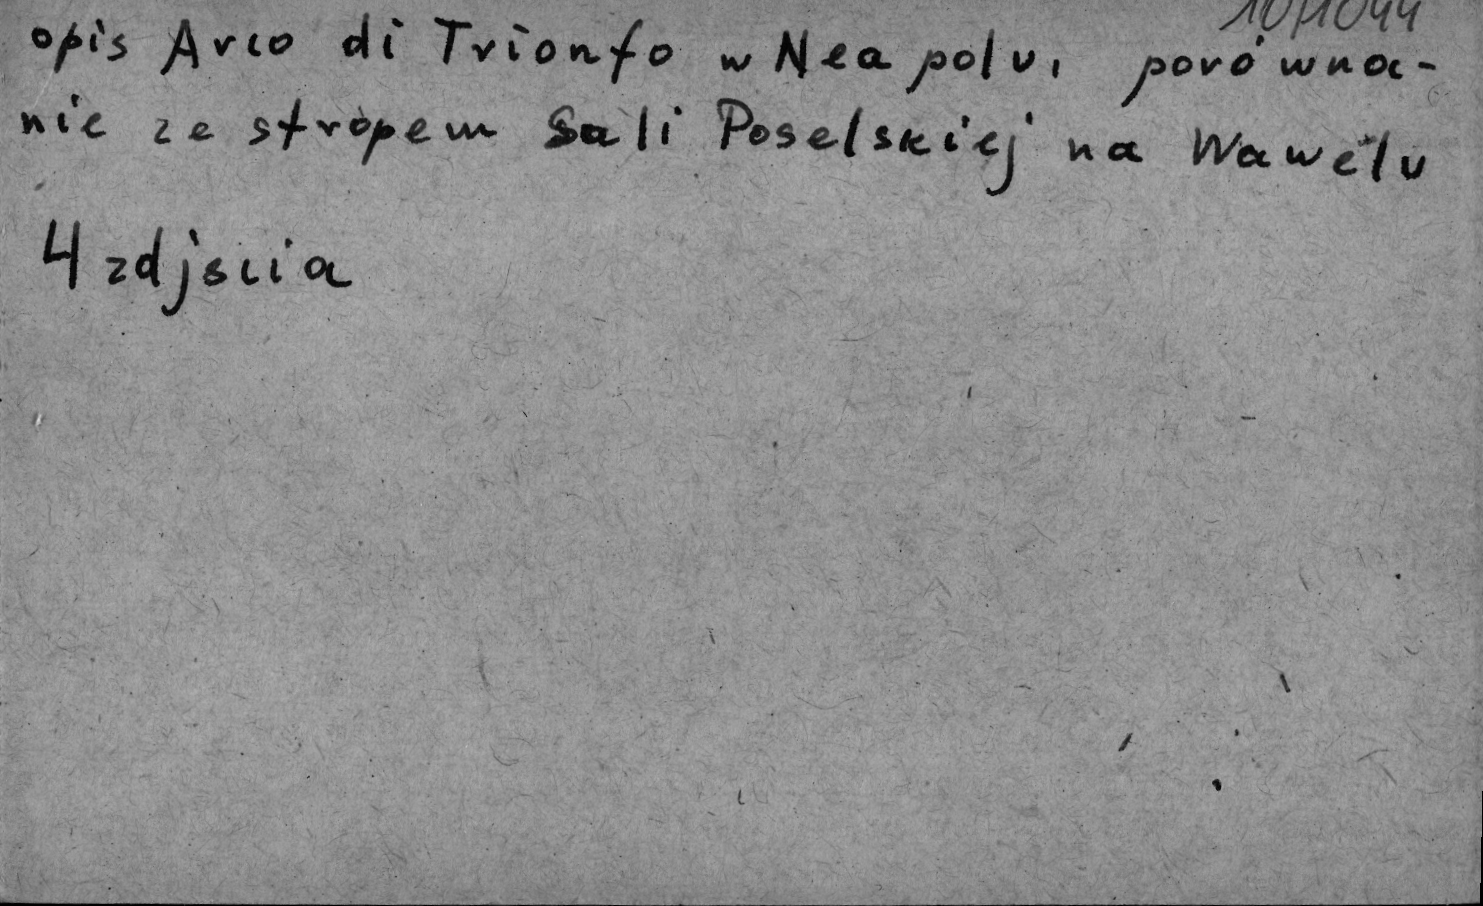 10/1044
opis Arco di Trionfo w Neapolu, porówna-
nie ze stropem Sali Poselskiej na Wawelu
4 zdjscia